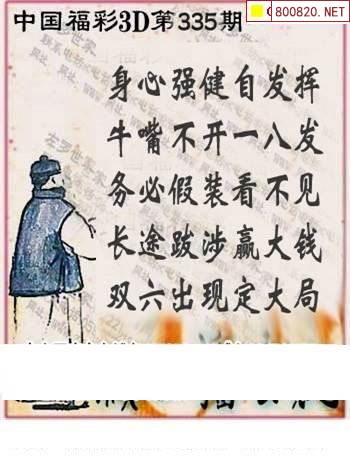 中国福彩3D第335期
800820.NET
身心强健自发挥
牛嘴不开一八发
务必假装看不见
长途跋涉赢大钱
双六出现定大局